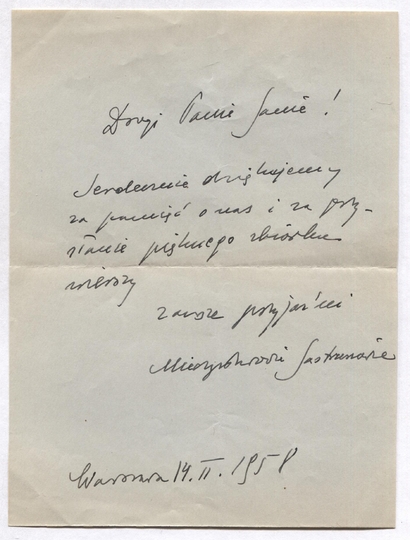 Drogi Panie Janie!
Serdecznie dziękujemy
za pamięć o nas i za przy-
słanie pięknego zbiorku
wierszy
zawsze przyjaźni
Mieczysławowie Jastrunowie
Warszawa 14.II.1958